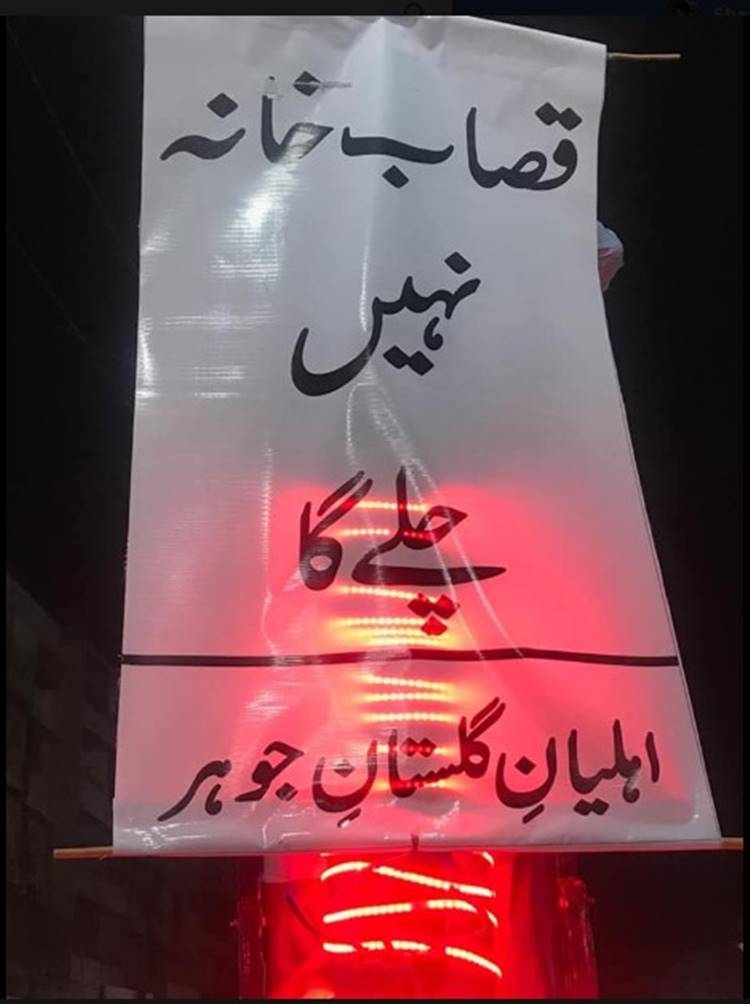 قصاب خانہ
نہیں
چلے گا
اہلیانِ گلستانِ جوہر